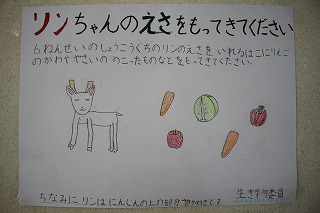 リンちゃんのえさをもってきてください
6ねんせいのしょうこうぐちのリンのえさを いれるはこにりんご
のかわややさいの のこったものなどをもってきてください。
ちなみに リンはにんじんの上の部分が好きです
生き物委員